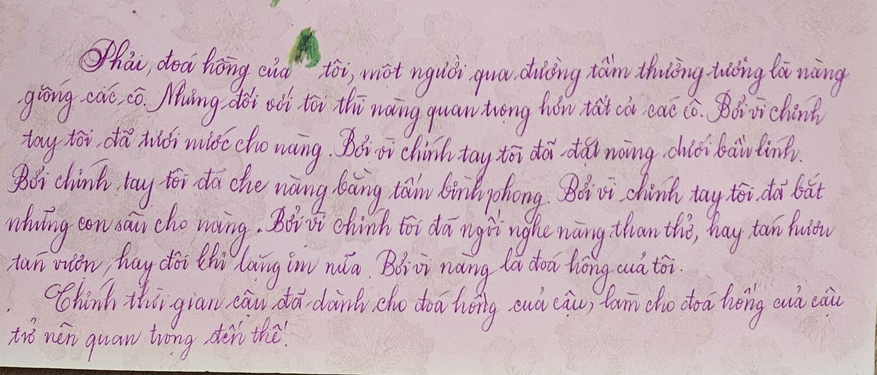 Phải, đoá hồng của tôi, một người qua đường tầm thường tưởng là nàng
giống các cô. Nhưng đối với tôi thì nàng quan trọng hơn tất cả các cô. Bởi vì chính
tay tôi đã tưới nước cho nàng. Bởi vì chính tay tôi đã đặt nàng dưới bầu lính.
Bởi chính tay tôi đã che nàng bằng tấm bình phong. Bởi vì chính tay tôi đã bắt
những con sâu cho nàng. Bởi vì chính tôi đã ngồi nghe nàng than thở, hay tán hươu
tán vượn, hay đôi khi lặng im nữa. Bởi vì nàng là đoá hồng của tôi.
Chính thời gian cậu đã dành cho đoá hồng của cậu, làm cho đoá hồng của cậu
trở nên quan trọng đến thế.